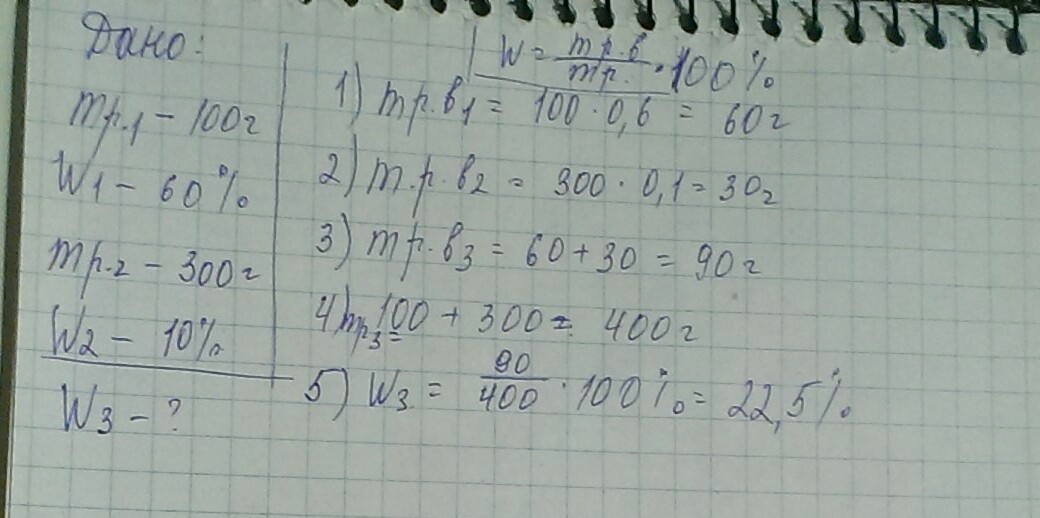 Дано:
mр.1 - 100г
W1 - 60%
mр.2 - 300г
W2 - 10%
W3 - ?
W = mр.в / mр. · 100%
1) mр.в1 = 100 · 0,6 = 60г
2) m.р.в2 = 300 · 0,1 = 30г
3) mр.в3 = 60 + 30 = 90г
4) mр3 = 100 + 300 = 400г
5) W3 = 90 / 400 · 100% = 22,5%